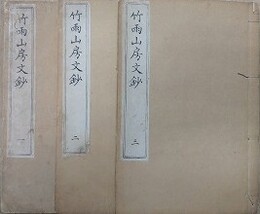 竹雨山房文鈔 一
竹雨山房文鈔 二
竹雨山房文鈔 三